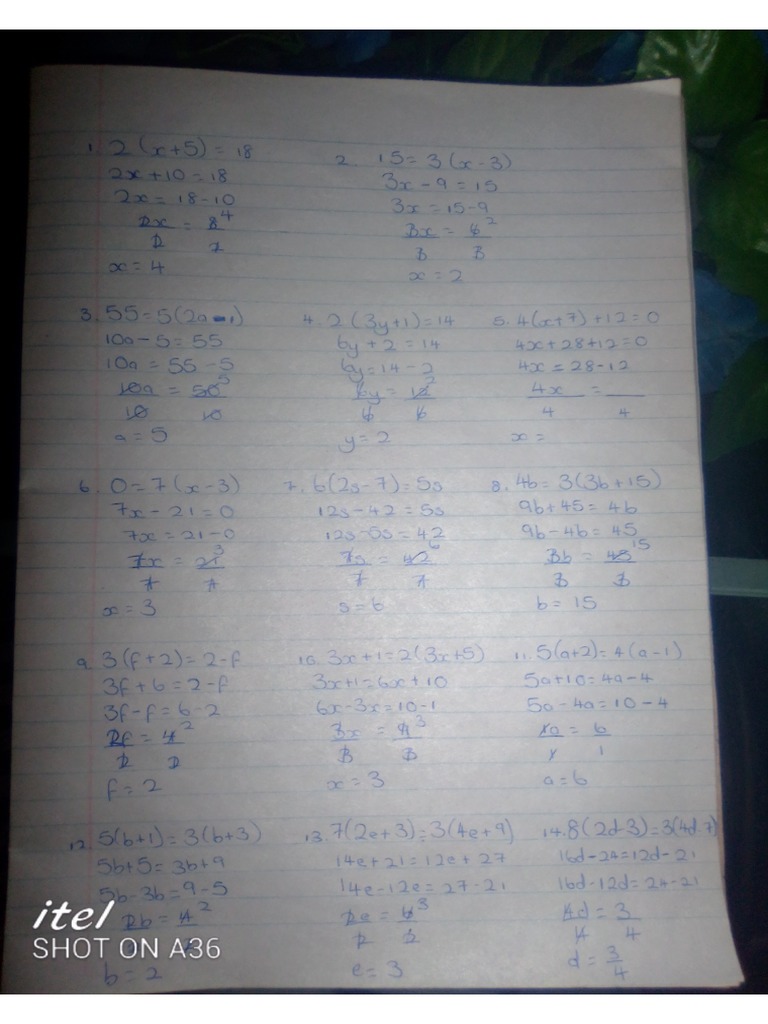 1. 2(x+5) = 18
2x + 10 = 18
2x = 18-10
2x = 8 4
2 2
x = 4
2. 15 = 3(x-3)
3x - 9 = 15
3x = 15-9
3x = 6 2
3 3
x = 2
3. 55 = 5(2a-1)
10a - 5 = 55
10a = 55 - 5
10a = 50 5
10 10
a = 5
4. 2(3y+1) = 14
6y + 2 = 14
6y = 14 - 2
6y = 12 2
6 6
y = 2
5. 4(x+7) + 12 = 0
4x + 28 + 12 = 0
4x = 28 - 12
4x =
4 4
x =
6. 0 = 7(x-3)
7x - 21 = 0
7x = 21 - 0
7x = 21 3
7 7
x = 3
7. 6(2s-7) = 5s
12s - 42 = 5s
12s - 5s = 42
7s = 42 6
7 7
s = 6
8. 4b = 3(3b+15)
9b + 45 = 4b
9b - 4b = 45
3b = 45 15
3 3
b = 15
9. 3(f+2) = 2-f
3f + 6 = 2-f
3f - f = 6 - 2
2f = 4 2
2 2
f = 2
10. 3x + 1 = 2(3x+5)
3x+1 = 6x + 10
6x - 3x = 10 - 1
3x = 9 3
3 3
x = 3
11. 5(a+2) = 4(a-1)
5a + 10 = 4a - 4
5a - 4a = 10 - 4
1a = 6
1 1
a = 6
12. 5(b+1) = 3(b+3)
5b + 5 = 3b + 9
5b - 3b = 9 - 5
2b = 4 2
b = 2
13. 7(2e+3) = 3(4e+9)
14e + 21 = 12e + 27
14e - 12e = 27 - 21
2e = 6 3
2 2
e = 3
14. 8(2d-3) = 3(4d-7)
16d - 24 = 12d - 21
16d - 12d = 24 - 21
4d = 3
4 4
d = 3
4
itel
SHOT ON A36